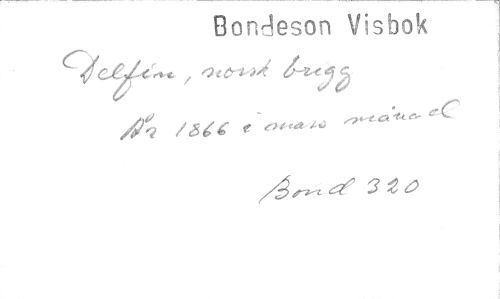 Bondeson Visbok
Delfin, norsk brigg
År 1866 i mars månad
Bond 320